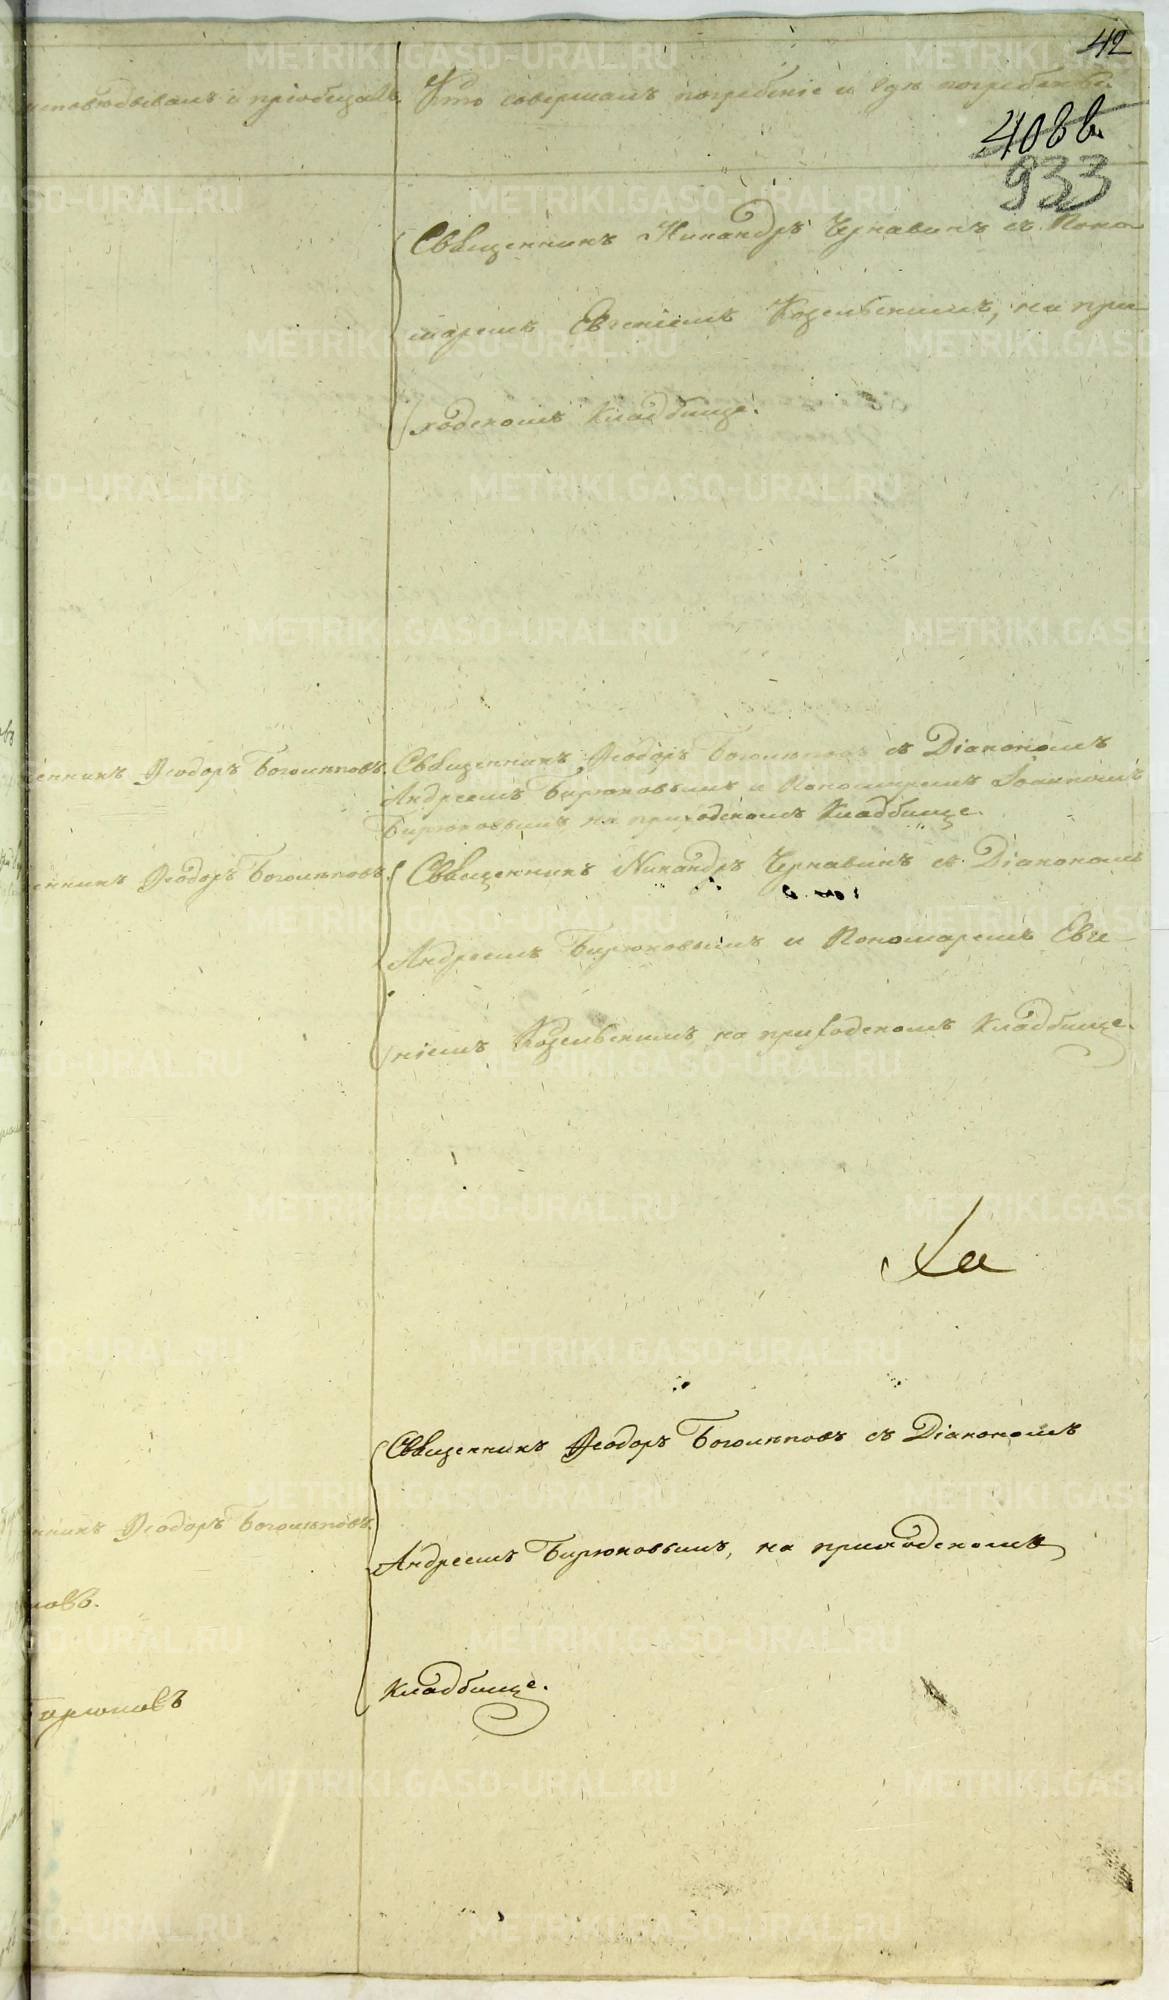 42
исповѣдывалъ и пріобщалъ. Кто совершалъ погребеніе и гдѣ погребены.
408 в.
933
Священникъ Никандръ Чернавинъ съ Поно-
маремъ Евгеніемъ Козельскимъ, на при-
ходскомъ кладбище.
енникъ Ѳеодоръ Боголѣповъ. Священникъ Ѳеодоръ Боголѣповъ съ Діакономъ
Андреемъ Бирюковымъ и Пономаремъ Іоанномъ
Бирюковымъ на приходскомъ Кладбище.
енникъ Ѳеодоръ Боголѣповъ. Священникъ Никандръ Чернавинъ съ Діакономъ
Андреемъ Бирюковымъ и Пономаремъ Евге-
ніемъ Козельскимъ, на приходскомъ Кладбище.
ха
Священникъ Ѳеодоръ Боголѣповъ съ Діакономъ
нникъ Ѳеодоръ Боголѣповъ.
Андреемъ Бирюковымъ, на приходскомъ
повъ.
Кладбище.
Бирюковъ
METRIKI.GASO-URAL.RU